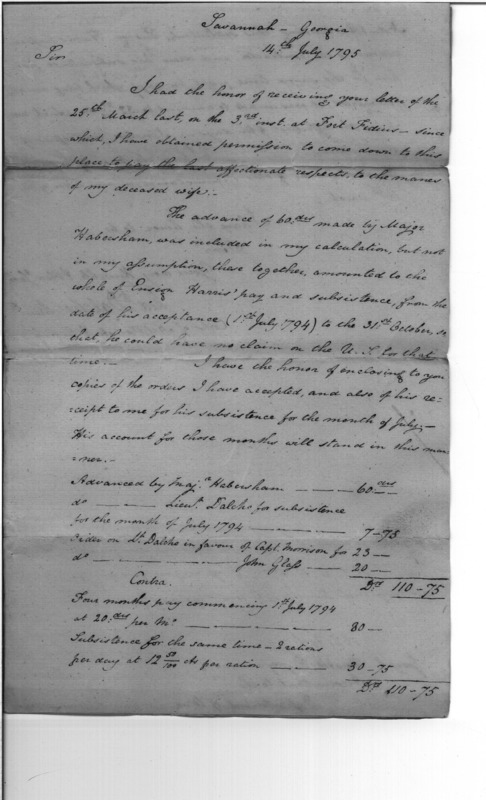 Savannah – Georgia
14.th July 1795
Sir
I had the honor of receiving your letter of the
25.th March last, on the 3.rd inst. at Fort Fidius – since
which, I have obtained permission to come down to this
place, to pay the last affectionate respects, to the manes
of my deceased wife. –
The advance of 60.drs made by Major
Habersham, was included in my calculation, but not
in my assumption, these together, amounted to the
whole of Ensign Harris' pay and subsistence, from the
date of his acceptance (1.st July 1794) to the 31.st October, so
that, he could have no claim on the U. S. for that
time. – I have the honor of enclosing to you
copies of the orders I have accepted, and also of his re=
=ceipt to me for his subsistence for the month of July; –
His account for those months will stand in this man
=ner. –
Advanced by Maj.r Habersham – – – 60.drs –
do – – – Lieut. Dalcho for subsistence
for the month of July 1794 – – – 7–75
Order on Lt. Dalcho in favour of Capt. Morrison for 23 –
do – – – John Glass – – – 20 –
Drs 110–75
Contra.
Four months pay commencing 1st July 1794
at 20.drs per Mo. – – – 80 –
Subsistence for the same time – 2 rations
per day at 12 50/100 cts per ration – – – 30–75
Drs 110–75